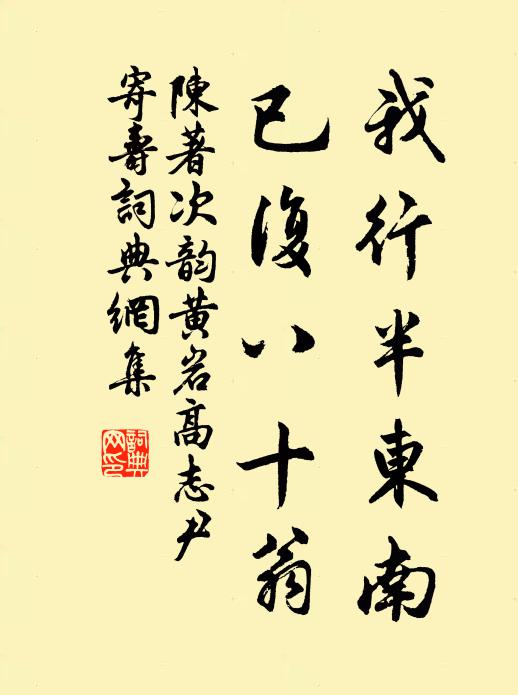 我行半東南
已復八十翁
陳著次韵黄岩高志尹
寄壽詞典網集
詞典網印